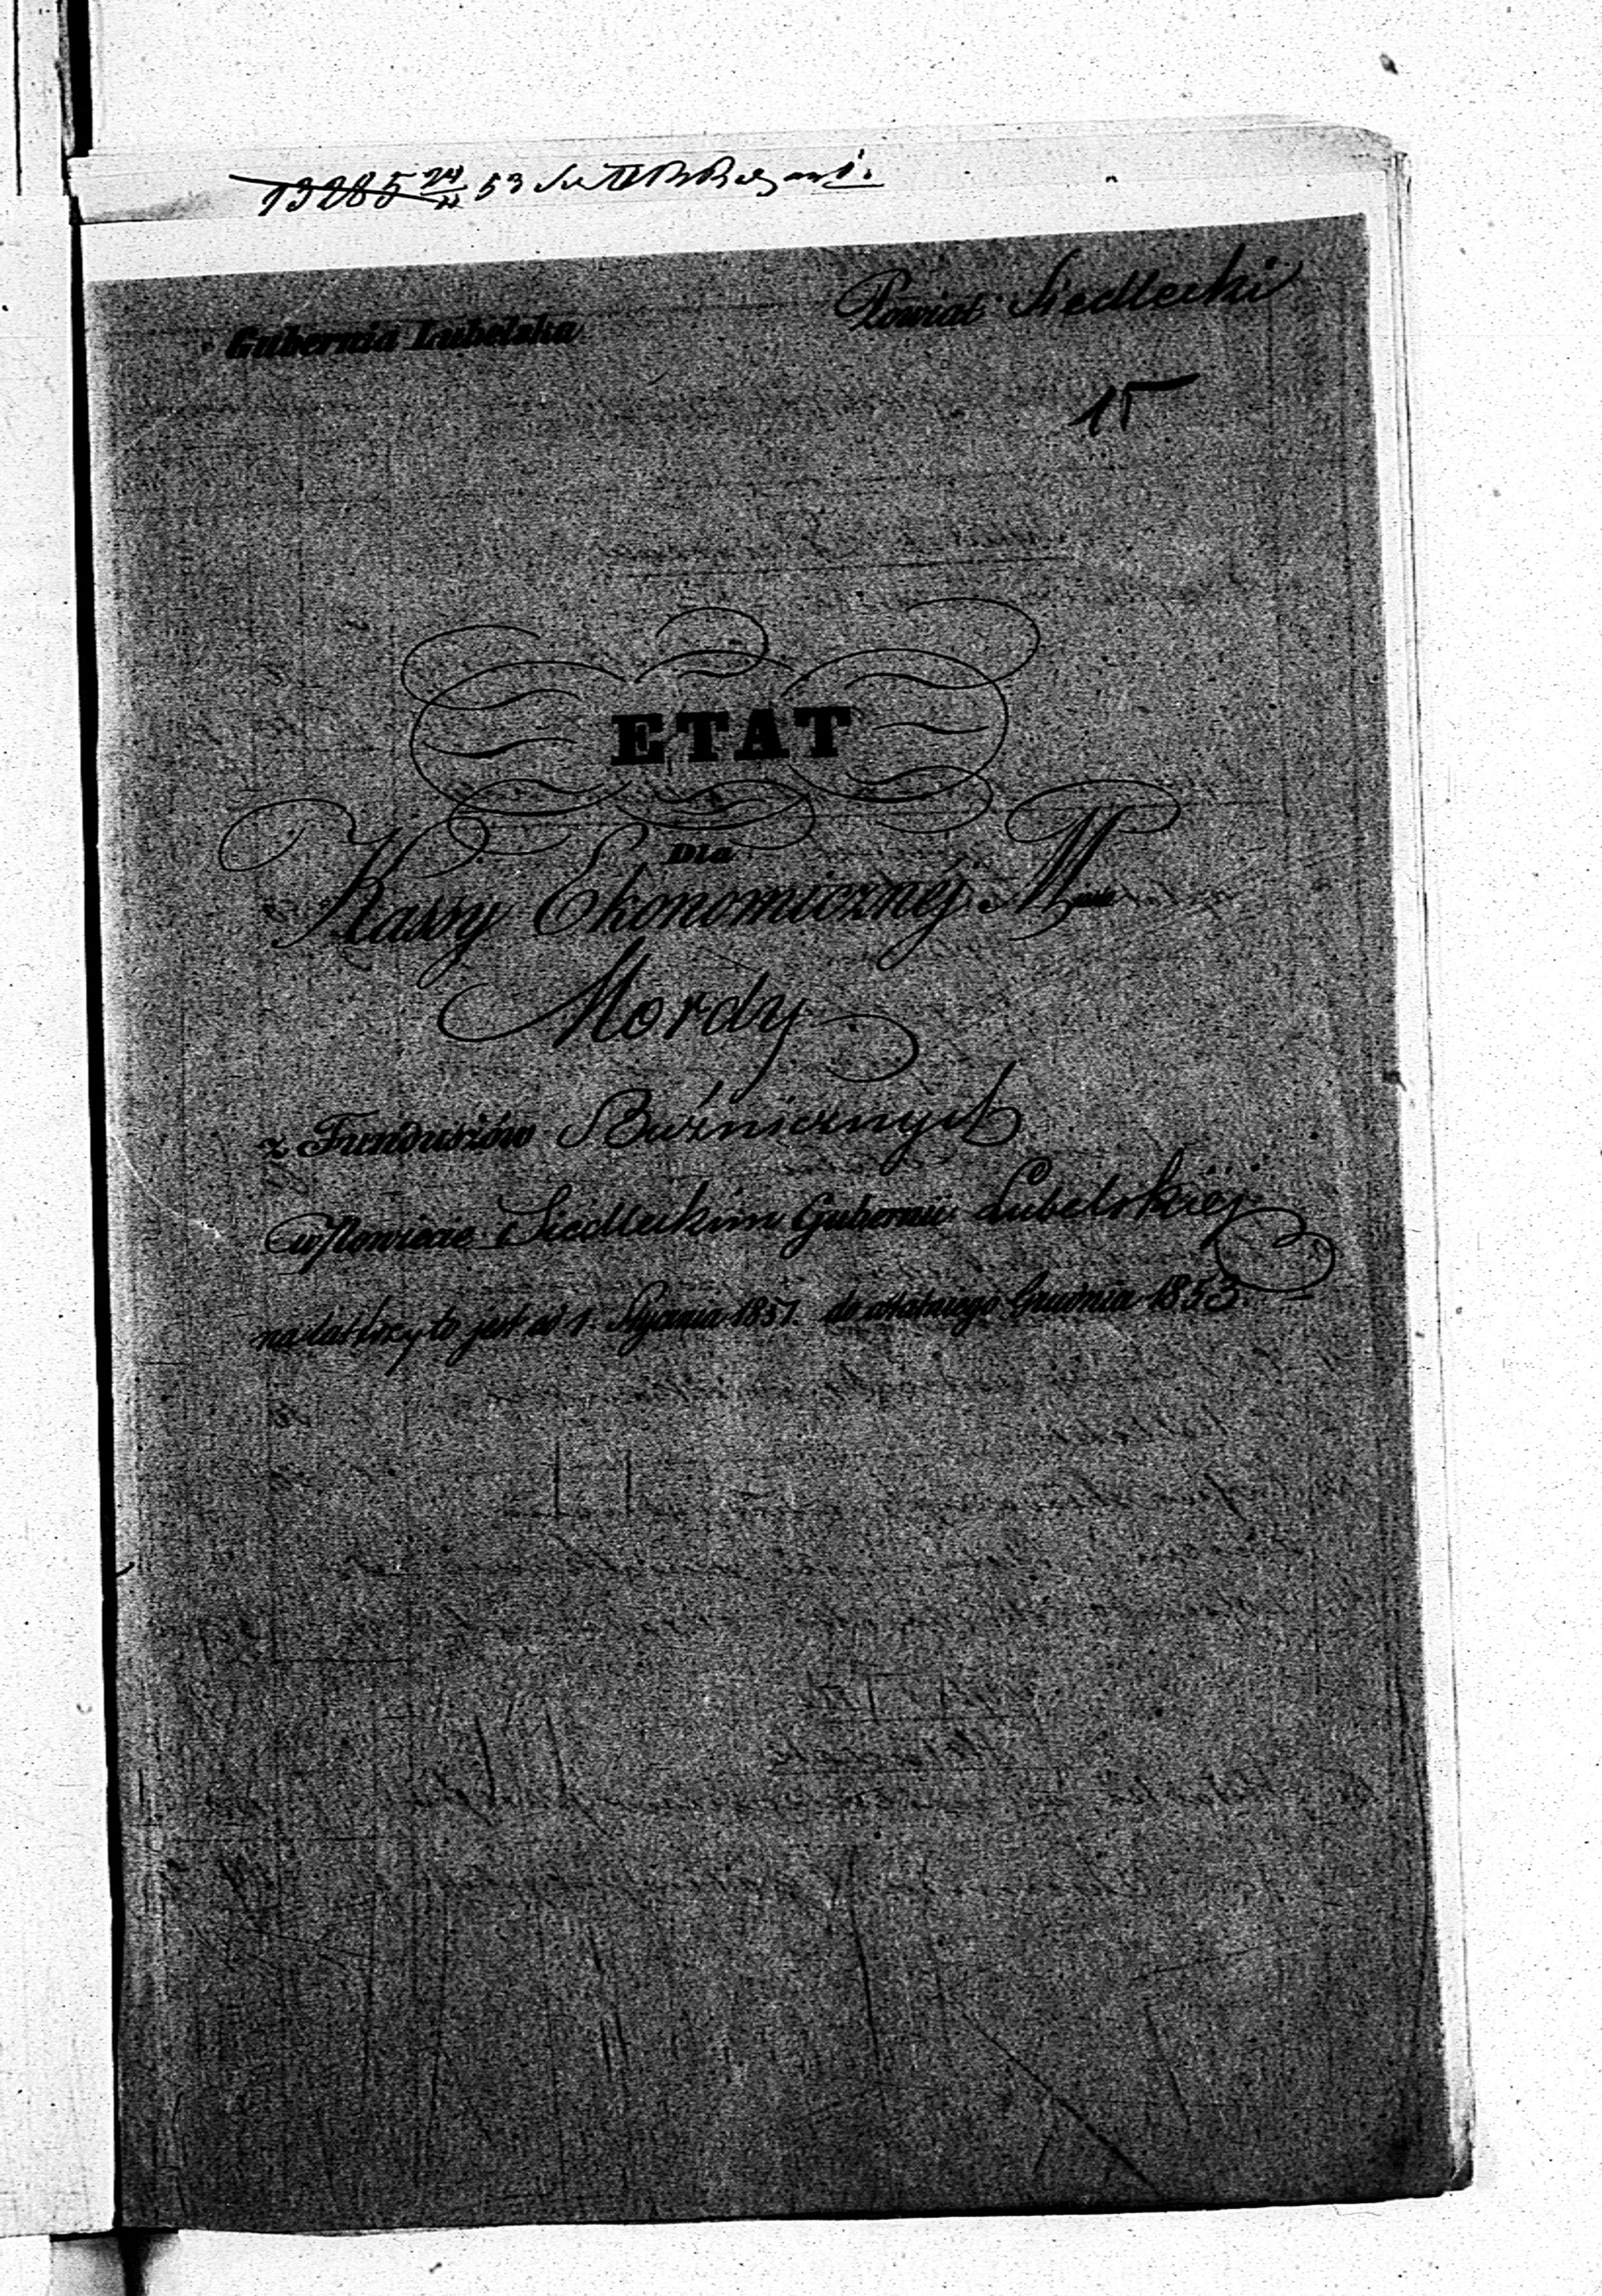 13285 53
Gubernia Lubelska
Powiat Siedlecki
15
ETAT
Dla
Kassy Ekonomicznéj Miasta
Mordy
z Funduszów Bużnicznych
w Powiecie Siedleckim Gubernii Lubelskiéj
na lat trzy to jest od 1. Stycznia 1851. do ostatniego Grudnia 1853.